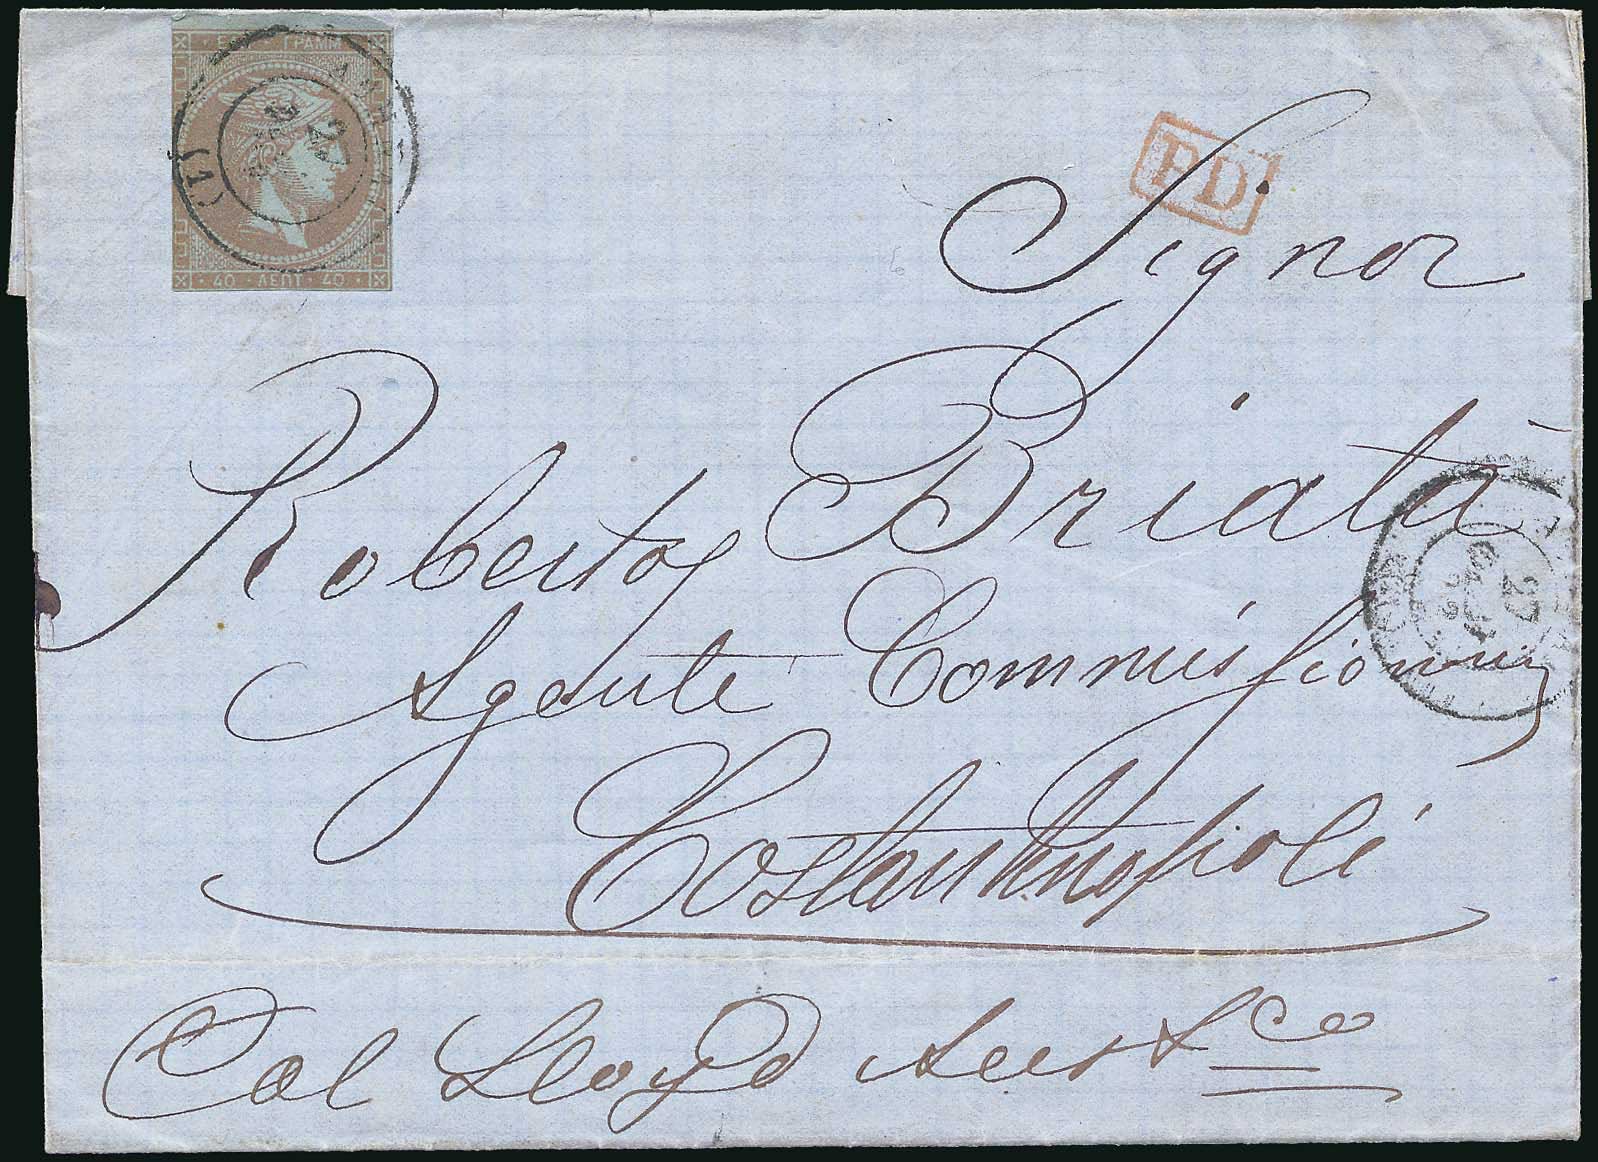 ΓΡΑΜΜ
40 ΛΕΠΤ 40
(1)
PD
Signor
Roberto Briatà
Agente Commissionario
Costantinopoli
27
Col Lloyd Aust Sco